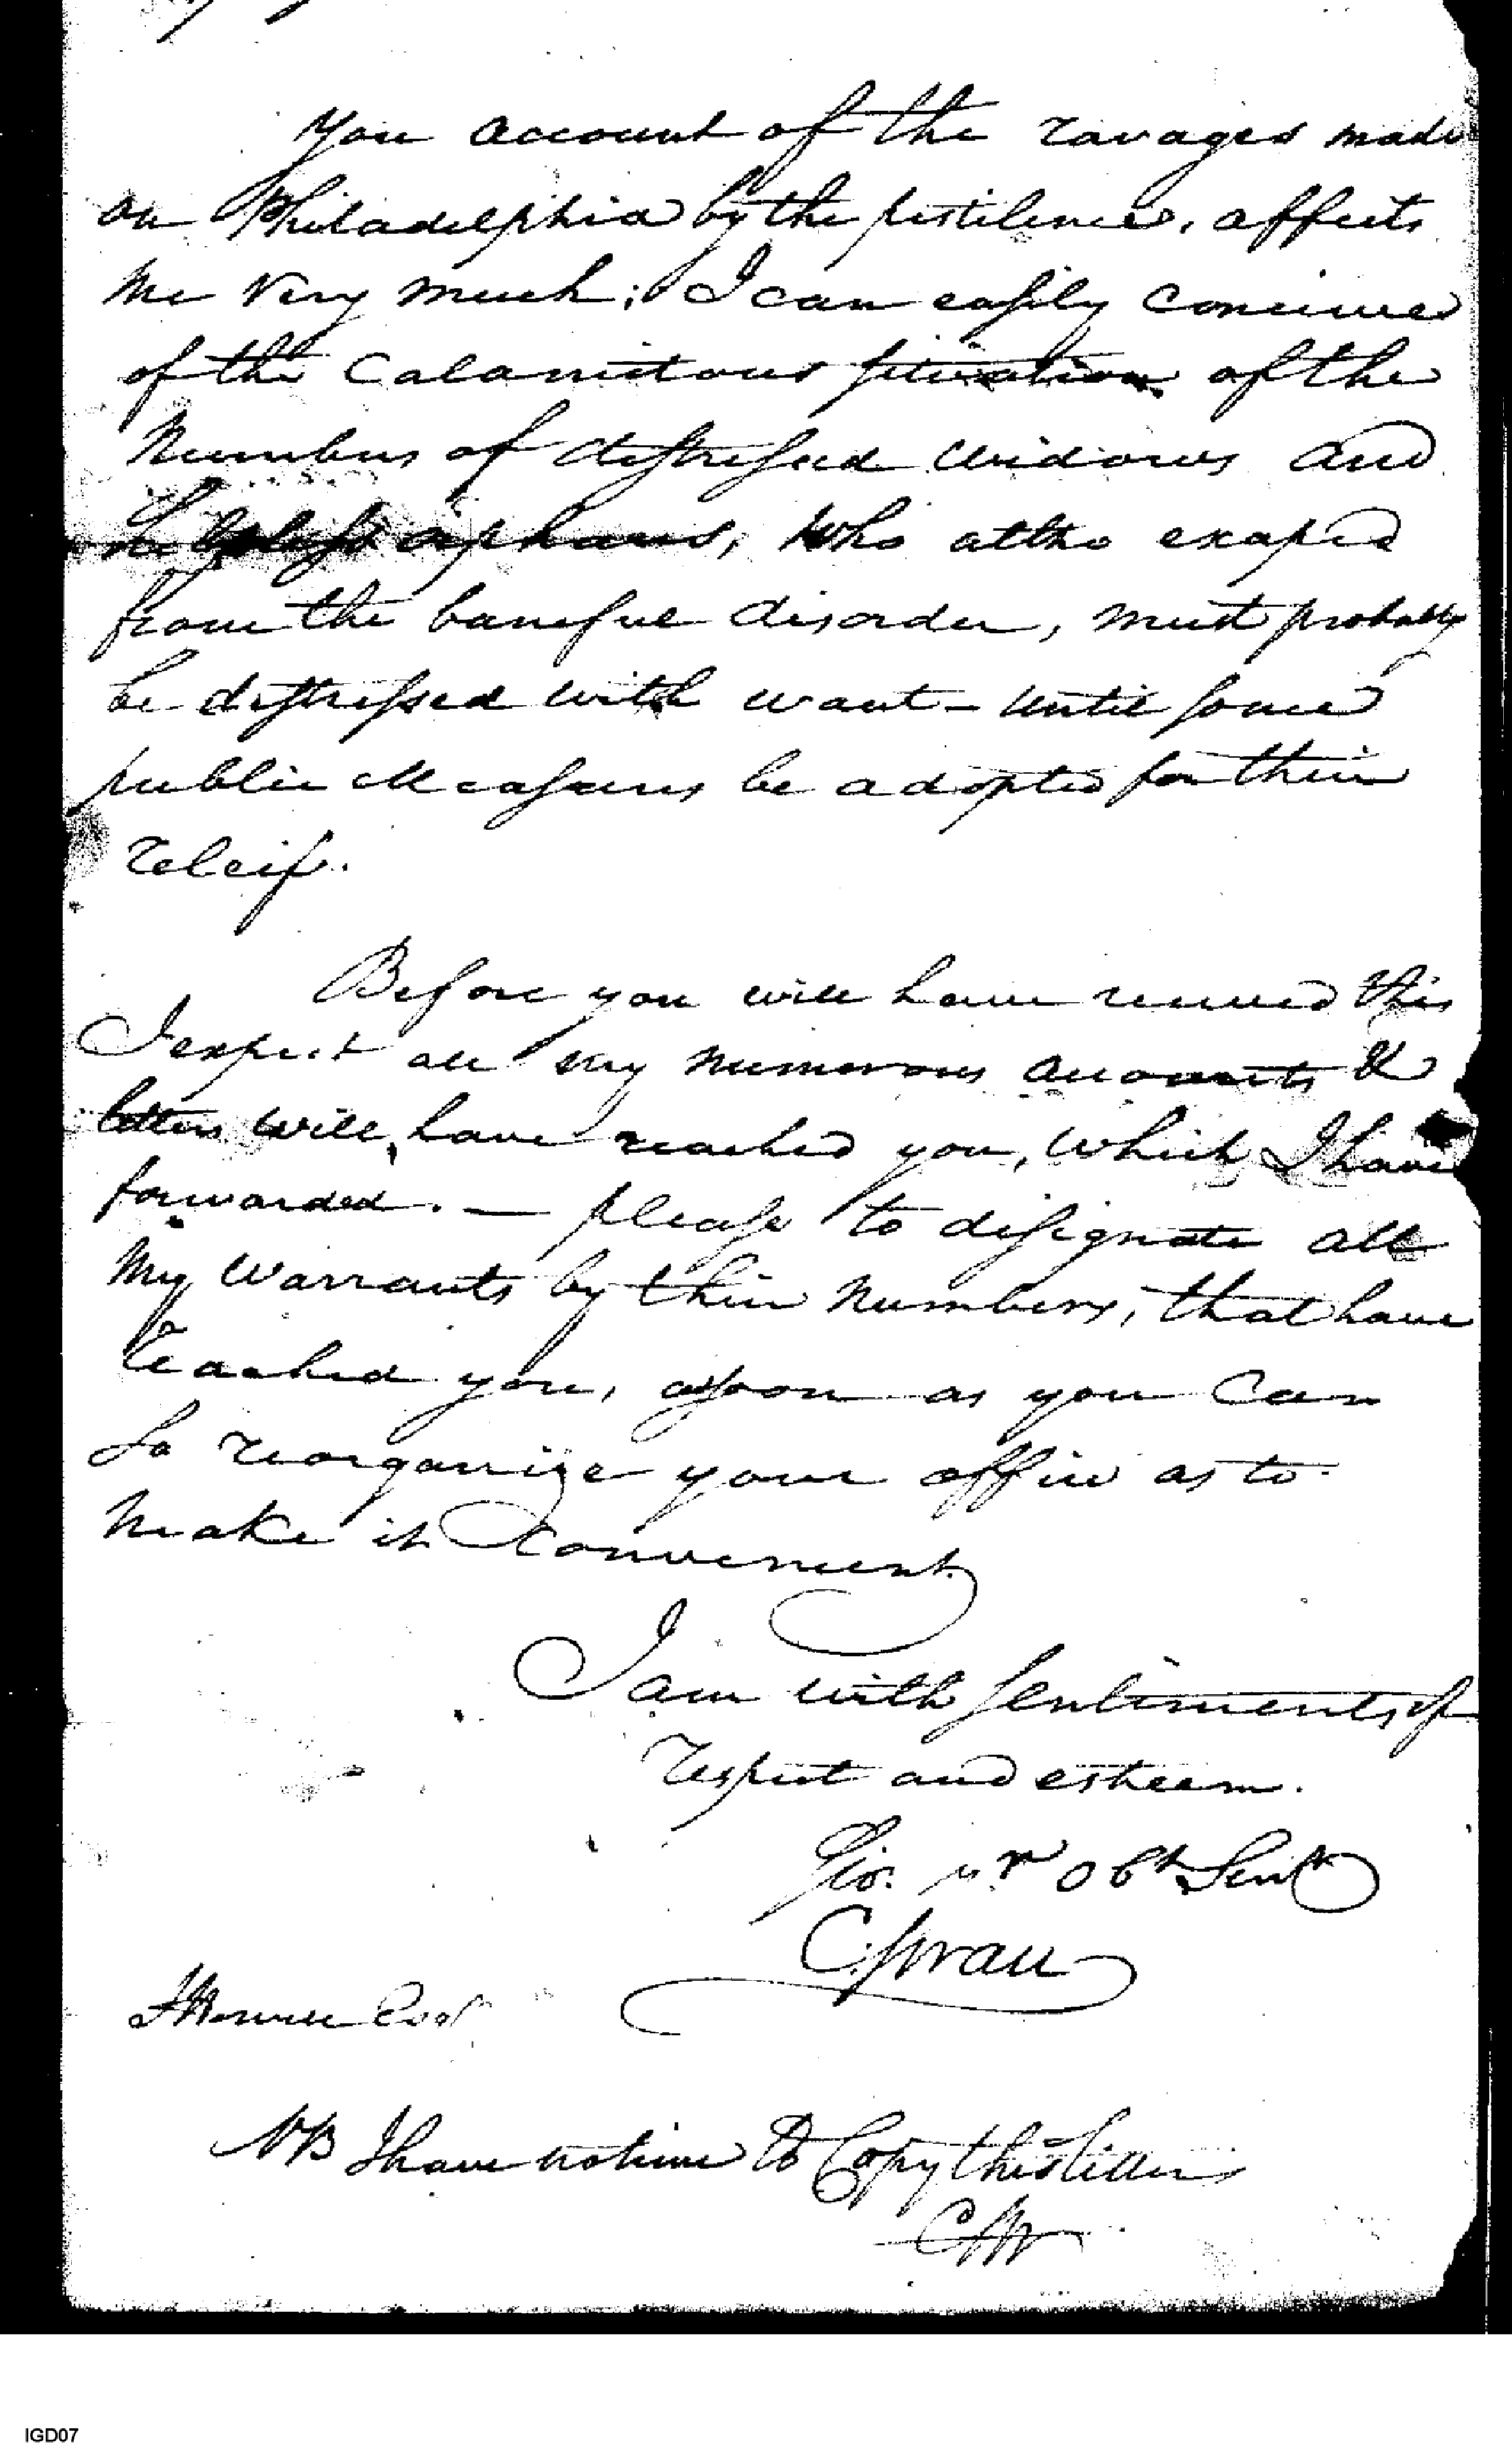 You account of the ravages made
on Philadelphia by the pestilence, affects
me very much; I can easily conceive
of the Calamitous situation of the
Numbers of distressed widows and
helpless orphans, who altho escaped
from the baneful disorder, must probably
be distressed with want – until some
public Measures be adopted for their
releif.
Before you will have received this
I expect all my numerous accounts &
letters will, have reached you, which I have
forwarded. — please to designate all
My Warrants by their Numbers, that have
reached you, assoon as you Can
So reorganize your office as to
make it Convenient.
I am with sentiments of
respect and esteem.
Sir. yr Obt Servt
C. Swan
J Howell Esqr
NB I have no time to Copy this Letter
CS
IGD07